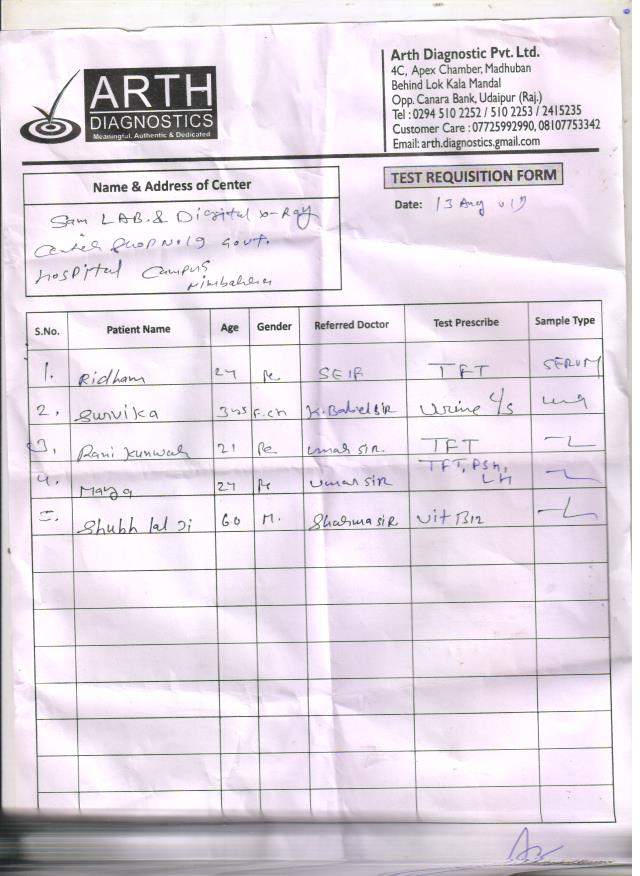 ARTH
DIAGNOSTICS
Meaningful, Authentic & Dedicated
Arth Diagnostic Pvt. Ltd.
4C, Apex Chamber, Madhuban
Behind Lok Kala Mandal
Opp. Canara Bank, Udaipur (Raj.)
Tel : 0294 510 2252 / 510 2253 / 2415235
Customer Care : 07725992990, 08107753342
Email: arth.diagnostics.gmail.com
Name & Address of Center
TEST REQUISITION FORM
Sam LAB. & Digital X-Ray
Center Shop No 19 Govt.
Hospital Campus
Nimbahera
Date: 13 Aug
S.No. Patient Name Age Gender Referred Doctor Test Prescribe Sample Type
1. Ridham 24 Fe SEIF TFT SERUM
2. Survika F.ch Urine C/S
3. Rani Kunwar 21 Fe Umar SIR. TFT
4. Maya 24 Fe Umar SIR TFT, FSH,
LH
5. Shubh lal Ji 60 M. Sharma SIR Vit B12